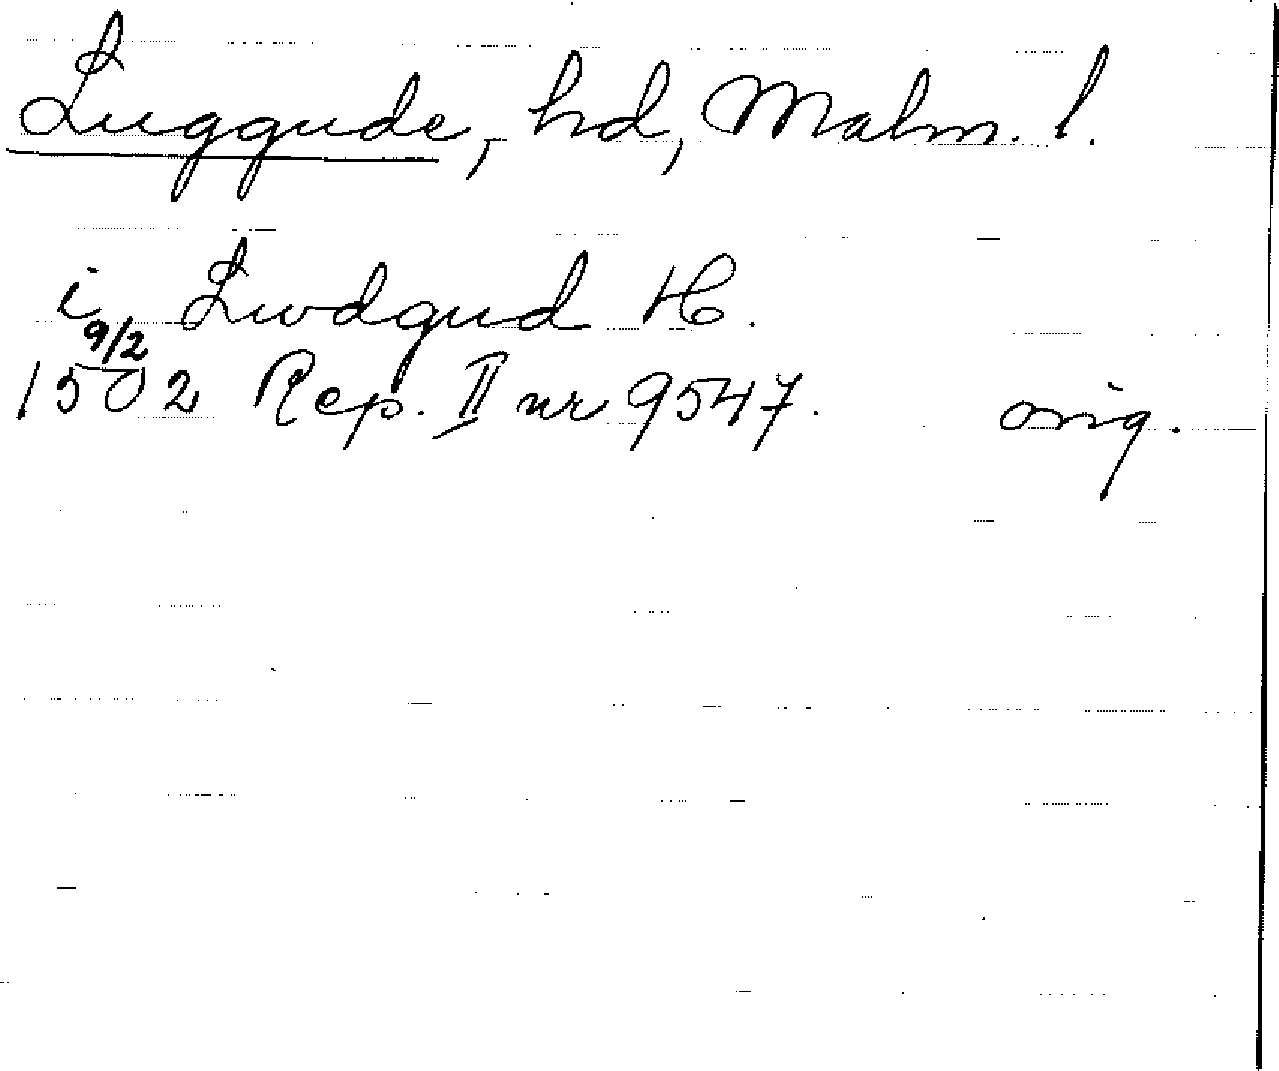 Luggude, hd, Malm. l.
i Lwdgud H.
9/2
1502 Rep. II nr 9547. orig.